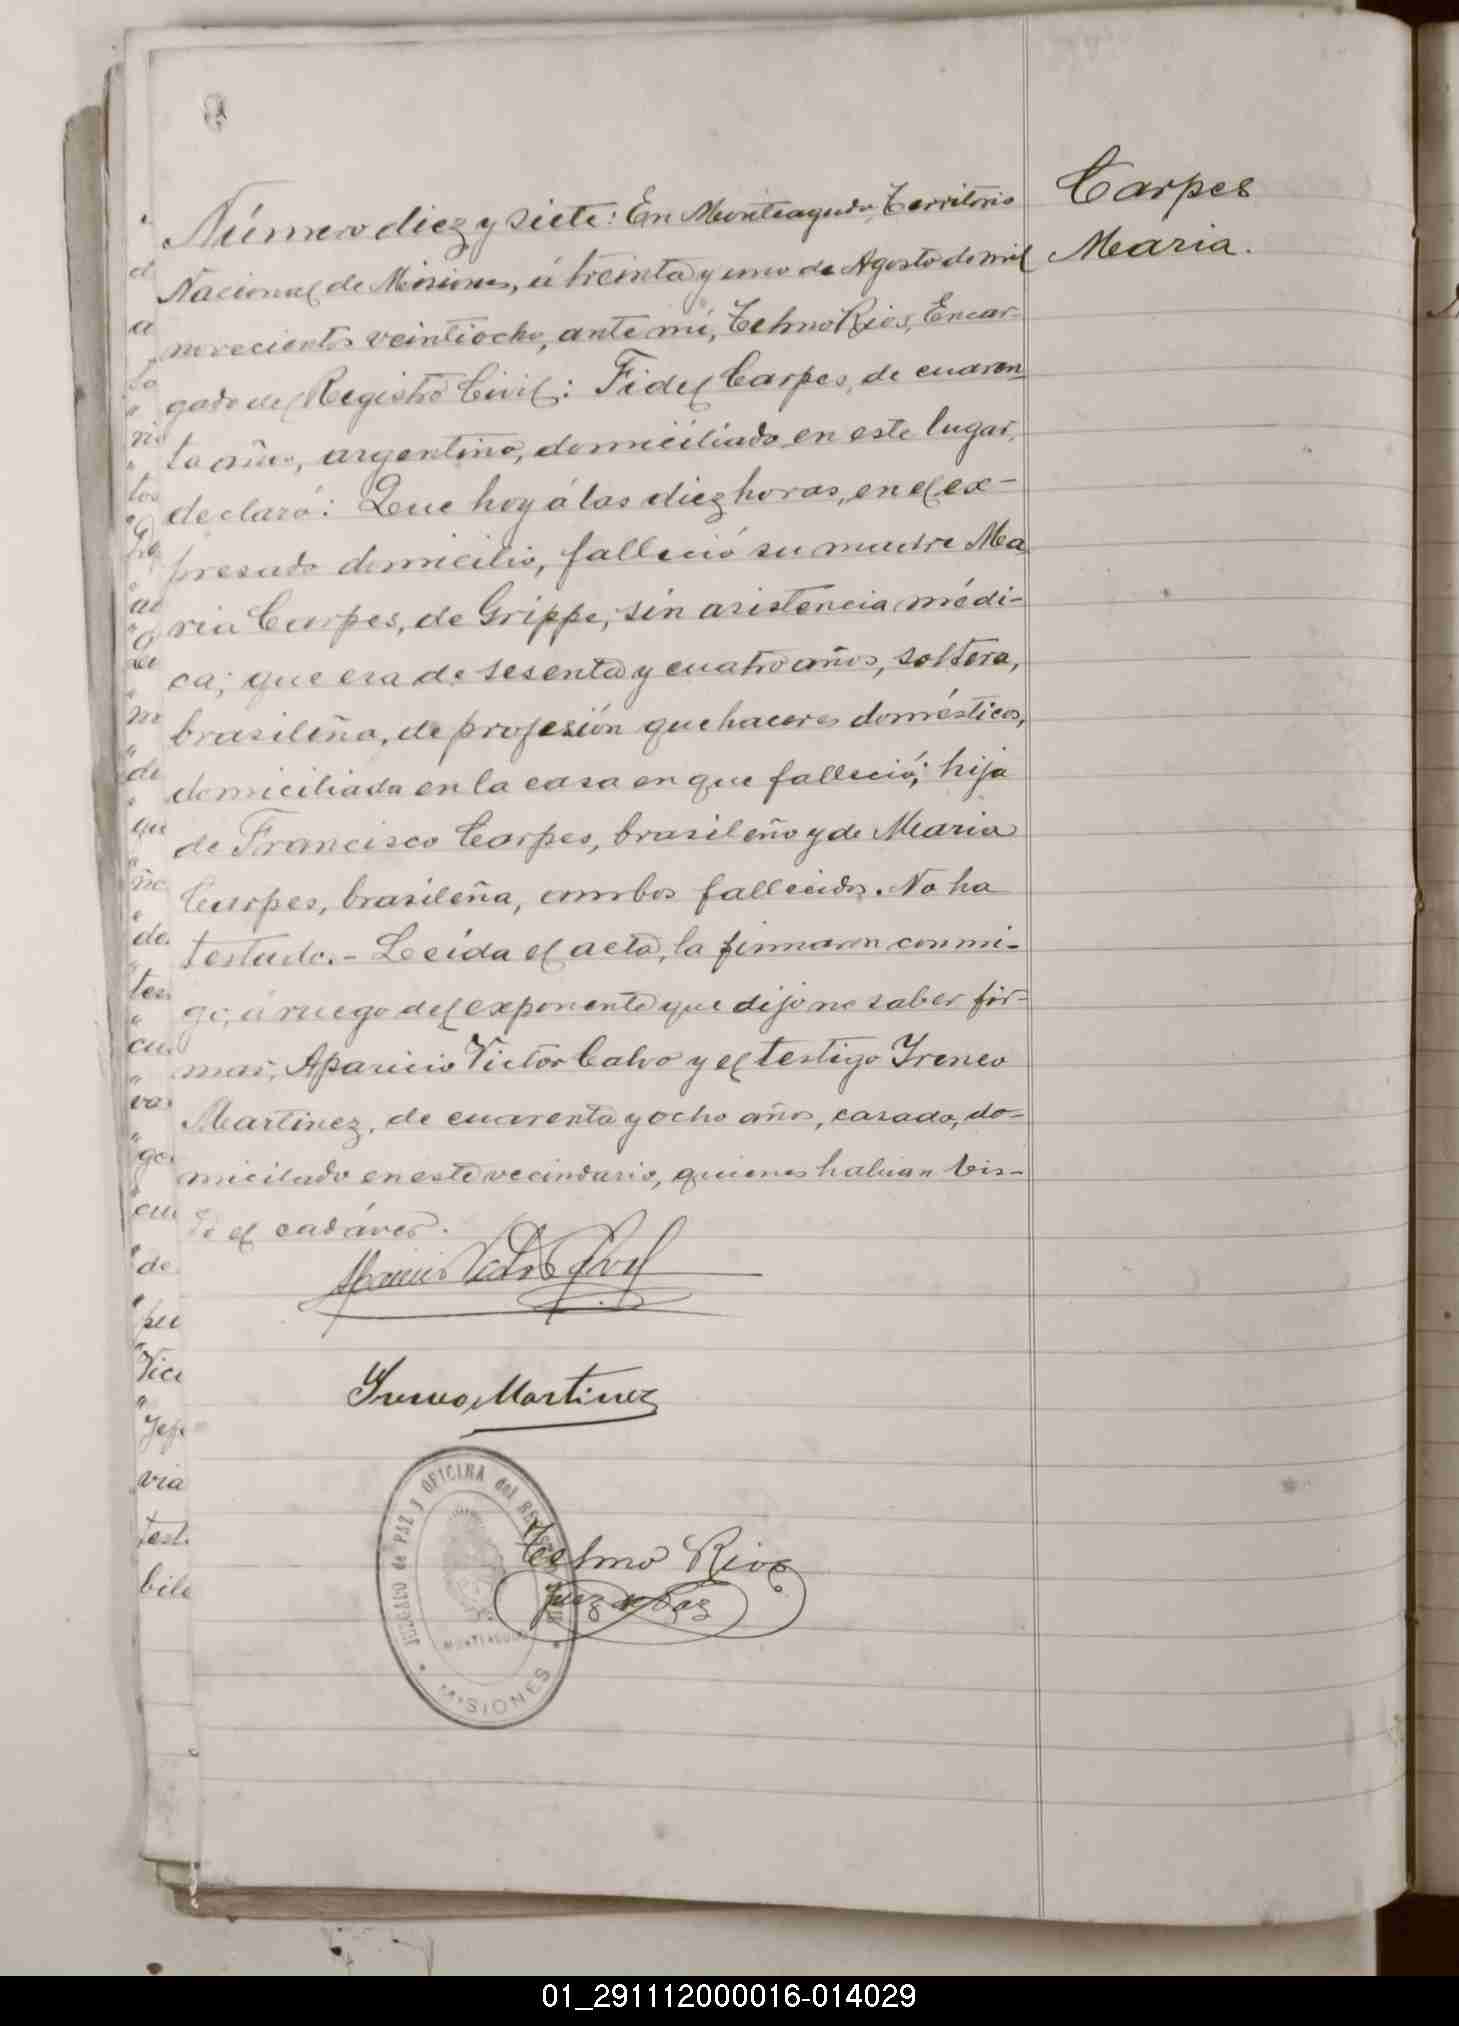 Carpes
Maria.
Número diez y siete: En Monteagudo, Territorio
Nacional de Misiones, á treinta y uno de Agosto de mil
novecientos veintiocho, ante mí, Telmo Rios, Encar-
gado del Registro Civil: Fidel Carpes, de cuaren-
ta años, argentino, domiciliado en este lugar,
declaró: Que hoy á las diez horas, en el ex-
presado domicilio, falleció su madre Ma
ria Carpes, de Grippe, sin asistencia médi-
ca; que era de sesenta y cuatro años, soltera,
brasileña, de profesión quehaceres domésticos,
domiciliada en la casa en que falleció; hija
de Francisco Carpes, brasileño y de Maria
Carpes, brasileña, ambos fallecidos. No ha
testado.- Leída el acta, la firmaron conmi-
go, á ruego del exponente que dijo no saber fir-
mar, Aparicio Victor Calvo y el testigo Yreneo
Martinez, de cuarenta y ocho años, casado, do-
miciliado en este vecindario, quienes habian vis-
to el cadáver.
Yreneo Martinez
JUZGADO de PAZ y OFICINA del
Telmo Rios
Juez de Paz
MONTEAGUDO
MISIONES
01_291112000016-014029